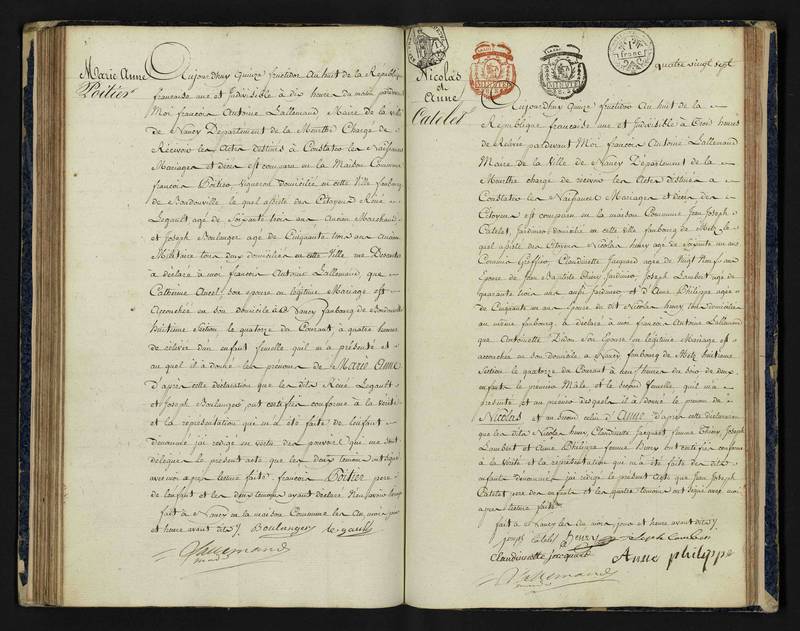 Marie Anne
Poitier
Aujourdhuy Quinze fructidor An huit de la République
francaise une et Indivisible à dix heures du matin pardevant
Moi francois Antoine Lallemand Maire de la Ville
de Nancy Département de la Meurthe Chargé de
Recevoir les Actes destinés à Constater les Naissances
Mariages et décès est comparu en la Maison Commune
francois Poitier Vigneron domicilié en cette Ville faubourg
de Bondonville lequel assisté des Citoyens René
Legault agé de Soixante trois ans Ancien Marechaud
et Joseph Boulanger agé de Cinquante trois ans ancien
Militaire tous deux domiciliés en cette Ville
à déclaré à moi francois Antoine Lallemand, que
Catherine son épouse en légitime Mariage est
Accouchée en son domicile à Nancy faubourg de Bondonville
huitième Section, le quatorze du Courant, à quatre heures
de relevée d'un enfant femelle qu'il m'a présenté et
au quel il à donné les prénoms de Marie Anne
D'après cette déclaration que les dits René Legault
et Joseph Boulanger ont certifiée conforme à la vérité
et la représentation qui m'a été faite de l'enfant
dénommé j'ai redigé en vertu des pouvoirs qui me sont
délégués le présent acte que les deux témoins ont signé
avec moi après lecture faite francois Poitier pere
de l'enfant et les deux témoins ayant déclaré
fait à Nancy en la maison Commune les An, mois jour
et heure avant dits
Boulanger Legault
Lallemand
maire
quatre vingt sept
1
franc
Nicolas
et
Anne
Catelet
Aujourdhuy quinze fructidor An huit de la
République francaise une et Indivisible à Trois heures
de Relevée pardevant Moi francois Antoine Lallemand
Maire de la Ville de Nancy Département de la
Meurthe chargé de recevoir les Actes destinés a
Constater les Naissances Mariages et décès des
Citoyens est comparu en la maison Commune Jean Joseph
Catelet, Jardinier domicilié en cette ville faubourg de Metz le
quel assisté des Citoyens Nicolas henry agé de Soixante un ans
Commis Greffier, Claudinette Jacquard agée de Vingt Neuf ans
Epouse de Jean Baptiste Thiery Jardinier, Joseph Lambert agé de
quarante trois ans aussi Jardinier et d'Anne Philippe agée
de Cinquante un ans épouse du dit Nicolas henry tous domiciliés
au même faubourg, à déclaré à moi francois Antoine Lallemand
que Antoinette Didon son Epouse en légitime Mariage est
accouchée en son domicile à Nancy faubourg de Metz huitième
Section le quatorze du Courant à neuf heures du soir de deux
enfants le premier Mâle et le second femelle qu'il m'a
présenté et au premier desquels il à donné le prénom de
Nicolas et au second celui d'Anne d'après cette déclaration
que les dits Nicolas henry Claudinette Jacquart femme Thiery, Joseph
Lambert et Anne Philippe femme henry ont certifiée conforme
à la vérité et la représentation qui m'a été faite des dits
enfants dénommés j'ai redigé le présent acte que Jean Joseph
Catelet pere des enfants et les quatre témoins ont signé avec moi
après lecture faite
fait à Nancy les An mois jour et heure avant dits
joseph Catelet henry Joseph Lambert
Claudinette Jacquart Anne philippe
Lallemand
maire